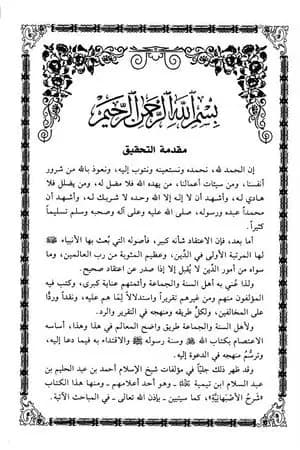 بسم الله الرحمن الرحيم
مقدمة التحقيق
إن الحمد لله، نحمده ونستعينه ونتوب إليه، ونعوذ بالله من شرور
أنفسنا، ومن سيئات أعمالنا، من يهده الله فلا مضل له، ومن يضلل فلا
هادي له، وأشهد أن لا إله إلا الله وحده لا شريك له، وأشهد أن
محمداً عبده ورسوله، صلى الله عليه وعلى آله وصحبه وسلم تسليماً
كثيراً.
أما بعد، فإن الاعتقاد شأنه كبير، فأصوله التي بُعث بها الأنبياء ﷺ
لها المرتبة الأولى في الدِّين، وعظيم المثوبة من رب العالمين، وما
سواه من أمور الدِّين لا يُقبل إلا إذا صدر عن اعتقاد صحيح.
ولذا عُني به أهل السنة والجماعة وأئمتهم عناية كبرى، وكتب فيه
المؤلفون منهم ومن غيرهم تقريراً واستدلالاً لِمَا هم عليه، ونقداً وردّاً
على المخالفين، ولكلٍّ طريقه ومنهجه في التقرير والرد.
ولأهل السنة والجماعة طريق واضح المعالم في هذا وهذا، أساسه
الاعتصام بكتاب الله ﷻ وسنة رسوله ﷺ والاقتداء به فيما دعا إليه،
وترسُّم منهجه في الدعوة إليه.
وقد ظهر ذلك جليّاً في مؤلفات شيخ الإسلام أحمد بن عبد الحليم بن
عبد السلام ابن تيمية ـ وهو أحد أعلامهم ـ ومنها هذا الكتاب
«شَرحُ الأصْبَهَانِيَّةِ»، كما سيتبين ـ بإذن الله تعالى ـ في المباحث الآتية.